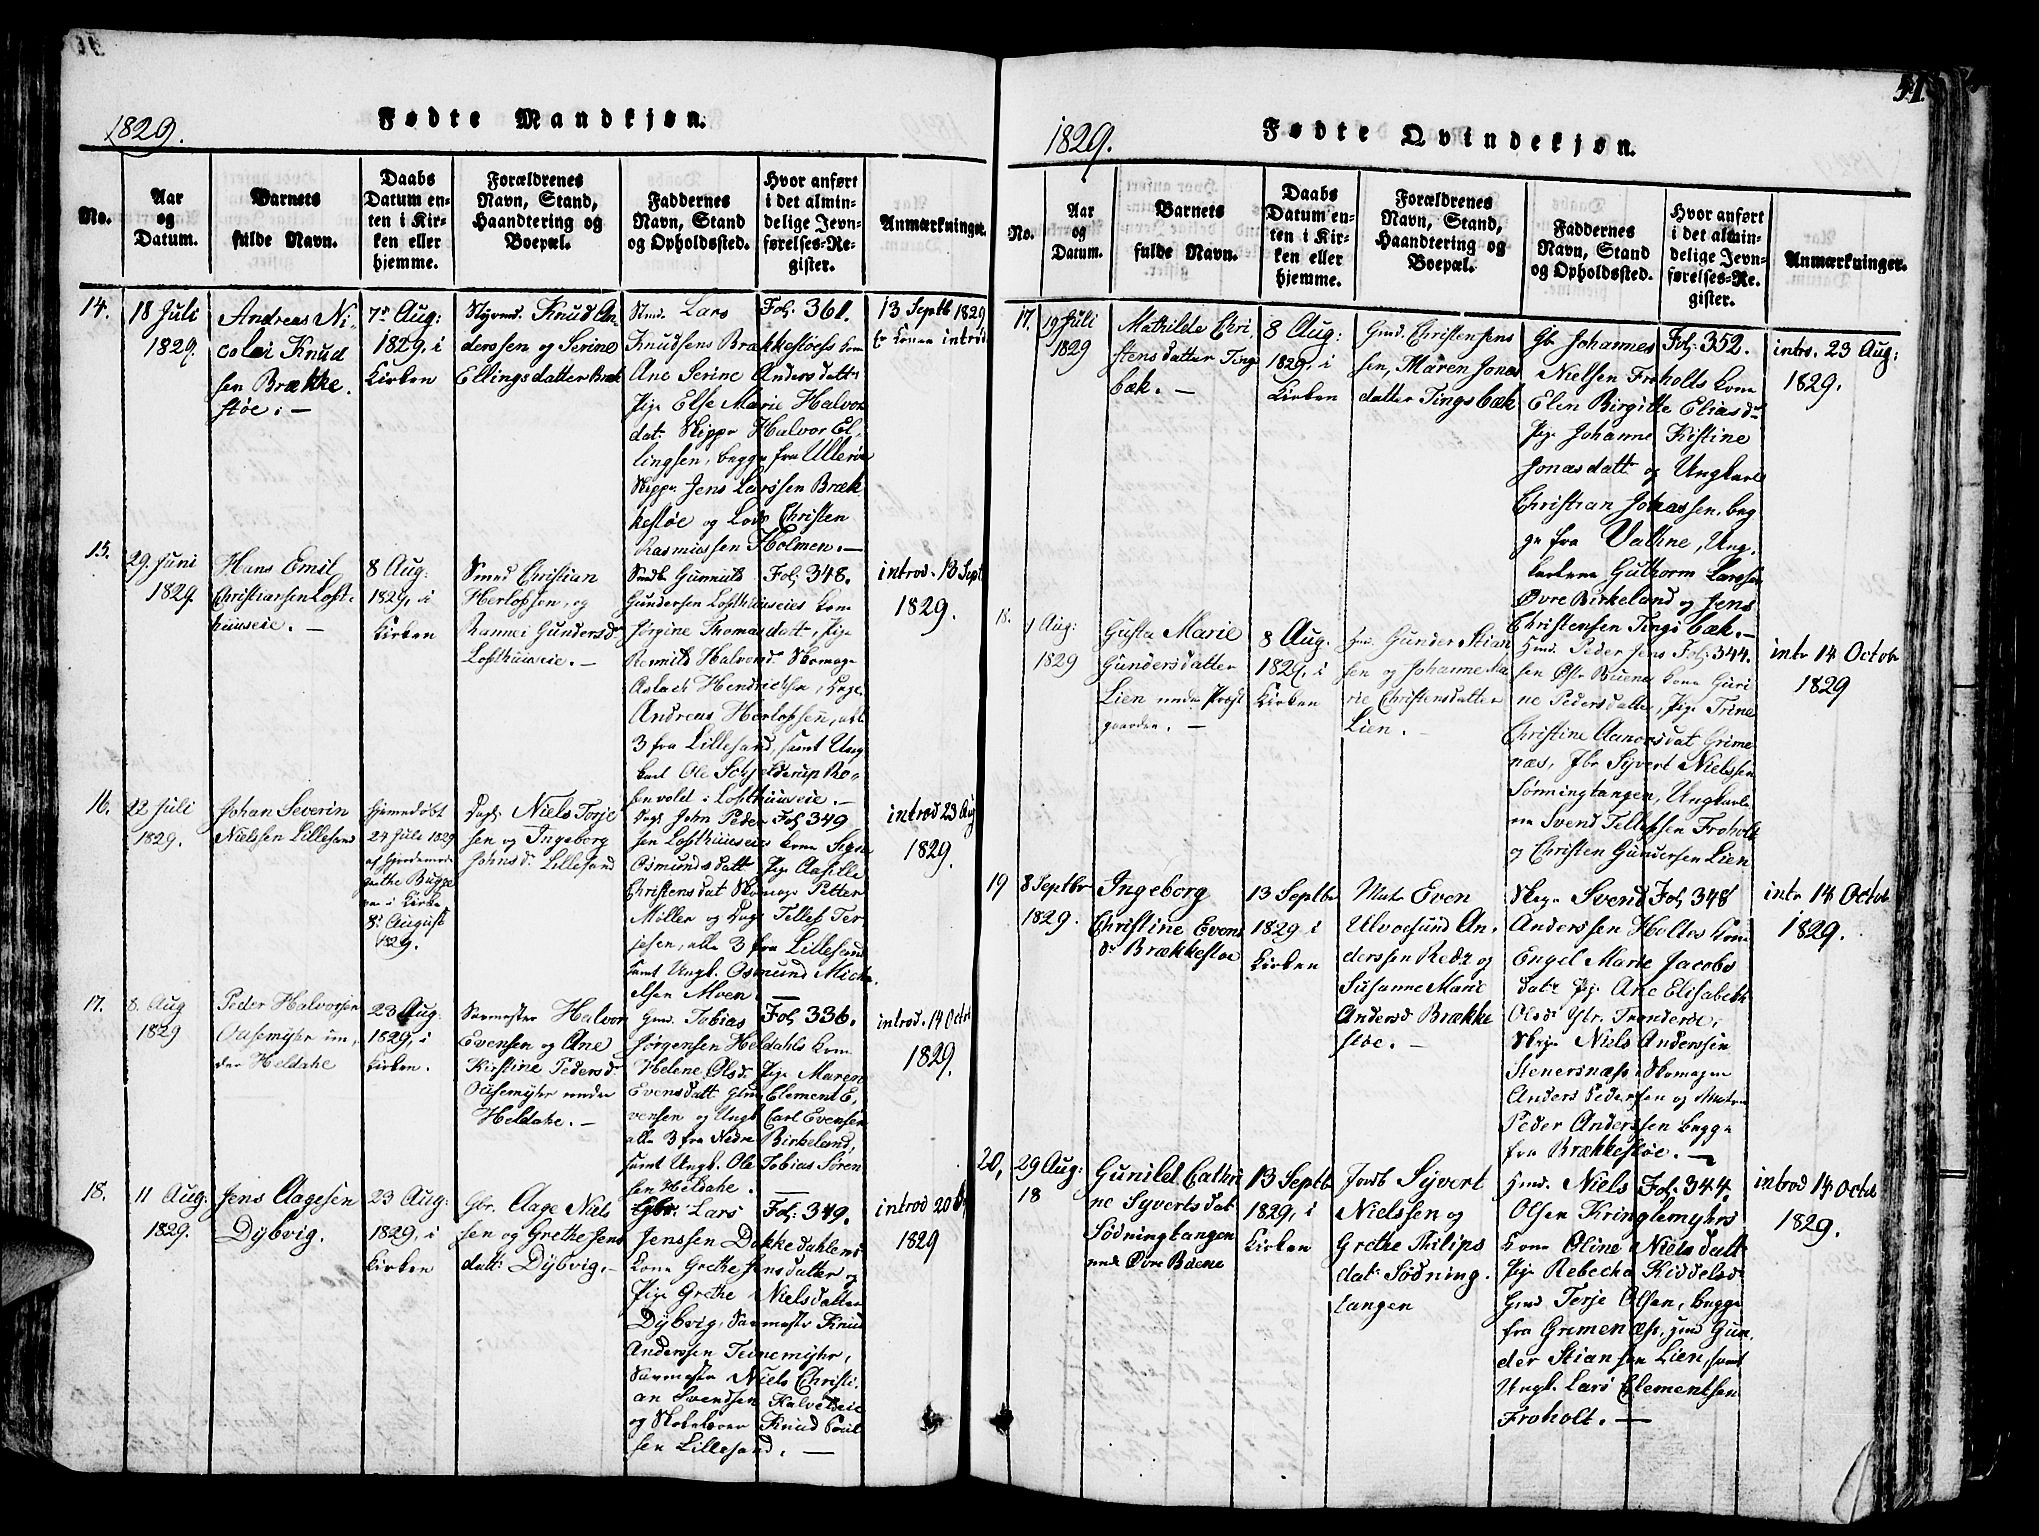 1829.
Fødte Mandkjøn.
No.
Aar og Datum.
Barnets fulde Navn.
Daabs Datum enten i Kirken eller hjemme.
Forældrenes Navn, Stand, Haandtering og Boepæl.
Faddernes Navn, Stand og Opholdssted.
Hvor anført i det almindelige Jevnførelses-Register.
Anmærkninger.
14.
18 Juli
1829.
Andreas Ni-
colai Knud
sen Brække-
støe. —
7de Aug:
1829, i
Kirken
Knud An
derssen og Serine
Ellingsdatter Bræk
Lars
Knudsens Brækkestøes Kone
Ane Serine Andersdatt:
Pige Else Marie Halvor
dat: Skippr Halvor El-
lingsen, begge fra Ulleröe
Skippr Jens Larssen Bræk
kestøe og Lods Christen
Rasmussen Holmen. —
Fol: 361.
13 Septb 1829
Konen introd
15.
29 Juni
1829.
Hans Emil
Christiansen Lofft-
huuseie. —
8 Aug:
1829, i
Kirken
Smed Christian
Herlofssen, og
Rannei Gundersdr
Loffthuuseie. —
Gunnuld
Gundersen Loffthuuseies Kone
Jørgine Thomasdatt, Pige
Halvorsd: Skomager
Aslach Hendrichsen,
Andreas Herlofssen, alle
3 fra Lillesand, samt Ung
karl Ole Schjelderup Ro-
senvold i Loffthuuseie. —
Fol: 348.
introd. 13 Sept
1829.
16.
22 Juli
1829.
Johan Severin
Nielssen Lillesand
Hjemmedøbt
24 Juli 1829
af Gjordemoder
Bugge
i Kirke
8de August
1829.
Niels Torje
sen og Ingeborg
Johnsdr Lillesand
John Peder
sen Loffthuuseies Kone Signe
Osmundsdatt Pige Aasille
Christensdat Skomager Petter
Miller og Tellef Ter
jesen, alle 3 fra Lillesand
samt Ungk. Osmund Mich
elsen Moen —
Fol: 349
introd 23 Aug
1829.
17.
8 Aug
1829
Peder Halvorsen
Ousemyhr un-
der Heldahe
23 Aug:
1829, i
Kirken.
Halvor
Evensen og Ane
Kirstine Pedersdr
Ousemyhr under
Heldahe. —
Gmd. Tobias
Jørgensen Heldahls Kone
Helene Olsdr Pige Maren
Evensdatt Clement E-
vensen og Ungk Carl Evensen
alle 3 fra Nedre Birkeland,
samt Ungk. Ole Tobias Søren
sen Heldahe. —
Fol: 336.
introd. 14 Octr
1829.
18.
11 Aug:
1829.
Jens Aagesen
Dybvig.
23 Aug:
1829, i
Kirken
Gbr. Aage Niels
sen og Grethe Jens
datt: Dybvig. —
Gbr: Lars
Jenssen Dokkedahlens
Kone Grethe Jensdatter og
Pige Grethe Nielsdatter
Dybvig, Knud
Anderssen Teinemyhr,
Niels Christi-
an Svendsen
og Skolelærer Knud Poul
sen Lillesand. —
Fol: 349.
introd 20
1829
51.
1829.
Fødte Qvindekjøn.
No.
Aar og Datum.
Barnets fulde Navn.
Daabs Datum enten i Kirken eller hjemme.
Forældrenes Navn, Stand, Haandtering og Boepæl.
Faddernes Navn, Stand og Opholdssted.
Hvor anført i det almindelige Jevnførelses-Register.
Anmærkninger.
17.
19 Juli
1829
Mathilde Chri
stensdatter Tings
bæk. —
8 Aug:
1829, i
Kirken
Gmd. Christen Jens
sen, Maren Jonas
datter Tingsbæk
Gbr Johannes
Nielsen Froholts Kone
Elen Birgitte Eliasdr
Pige Johanne Kistine
Jonasdatt og Ungkarl
Christian Jonassen, beg
ge fra Vatne, Ung-
karlene Guthorm Larssen
Øvre Birkeland og Jens
Christensen Tingsbæk. —
Fol: 352.
intro. 23 Aug:
1829.
18.
1 Aug:
1829
Gusta Marie
Gundersdatter
Lien under Præst
gaarden. —
8 Aug.
1829, i
Kirken
Gunder Stian
sen og Johanne Ma
rie Christensdatter
Lien. —
Peder Jens
sen Østr Buene Kone Guri
ne Pedersdatter, Pige Trine
Christine Aanorsdat Grime
næs, Jbr Syvert Nielssen
Sønningtangen, Ungkarle
ne Svend Tellefsen Froholt
og Christen Gundersen Lien
Fol: 344.
intr 14 Octobr
1829
19
8 Septbr
1829.
Ingeborg
Christine Evens
dr Brækkestøe
13 Septbr
1829 i
Kirken
Matr Even
Ulvøesund An-
derssen Redr og
Susanne Marie
Andersd Brække
støe. —
Svend
Anderssen Holtes Kone
Engel Marie Jacobs
datr Pige Ane Elisabeth
Olsdr
Niels Anderssen
Stenersnæs, Skomager
Anders Pedersen og Matros
Peder Anderssen begge
fra Brækkestøe. —
Fol 348
intr 14 Octobr
1829.
20,
29 Aug:
18
Gunild Cathri
ne Syvertsdat
Södningtangen
und Øvre Buene
13 Septbr
1829, i
Kirken
Syvert
Nielssen og
Grethe Philips
dat: Södning-
tangen
Niels
Olsen Kringlemyhrs
Kone Oline Nielsdatt:
Pige Rebecha Kiddelsdr
Terje Olsen, begge
fra Grimenæs, Gun-
der Stiansen Lien, samt
Ungk. Lars Clementsen
Froholt. —
Fol: 344.
introd 14 Octbr
1829.